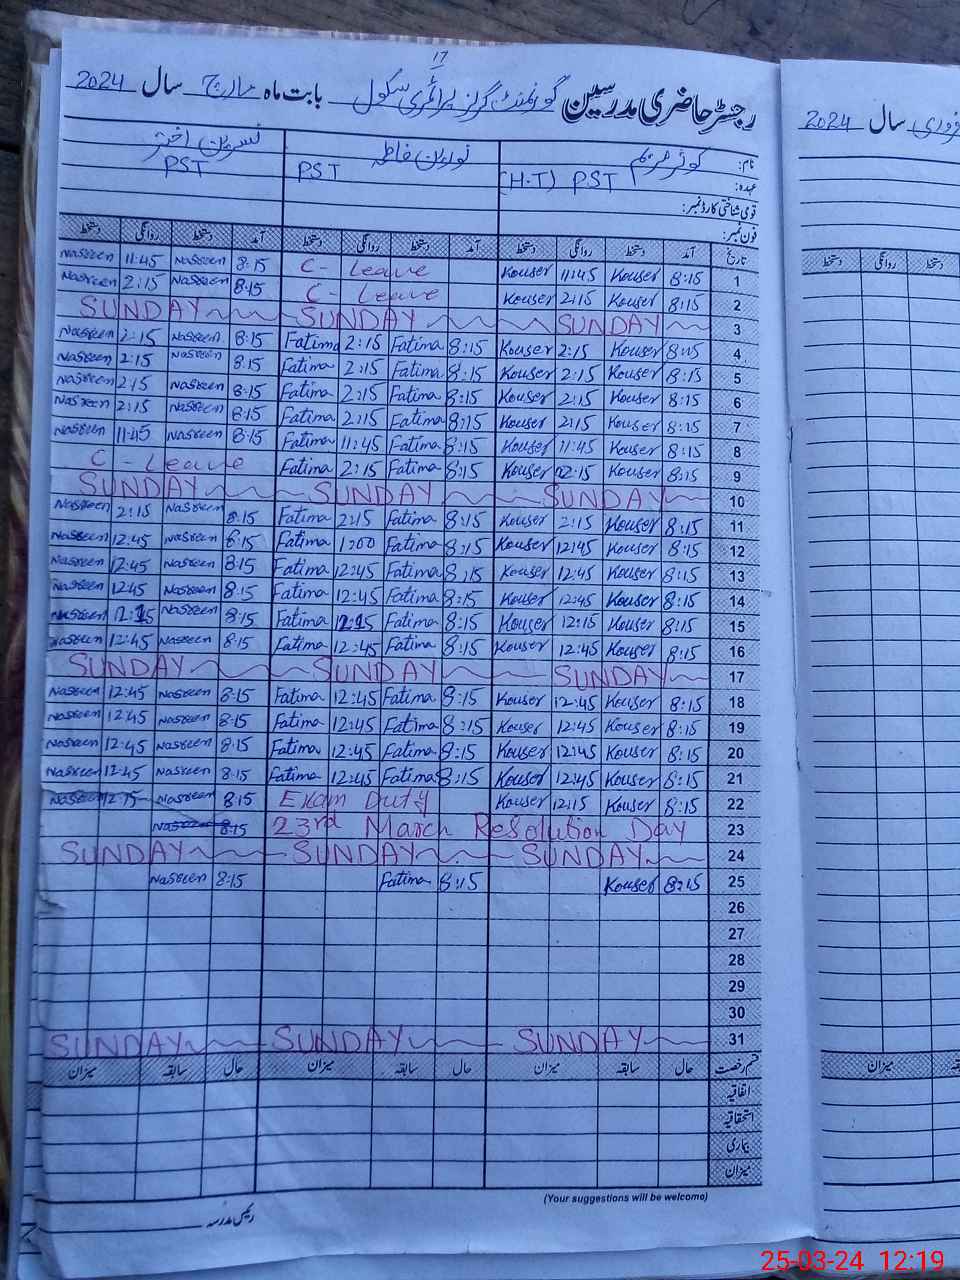 17
رجسٹر حاضری مدرسین گورنمنٹ گرلز پرائمری سکول بابت ماہ مارچ سال 2024
نام: کوثر مریم نورین فاطمہ نسرین اختر
عہدہ: (H.T) PST PST PST
قومی شناختی کارڈ نمبر:
فون نمبر:
تاریخ آمد دستخط روانگی دستخط آمد دستخط روانگی دستخط آمد دستخط روانگی دستخط
Nasreen 11:45 Nasreen 8:15 C- Leave Kouser 11:45 Kouser 8:15 1
Nasreen 2:15 Nasreen 8:15 C- Leave Kouser 2:15 Kouser 8:15 2
SUNDAY SUNDAY SUNDAY 3
Nasreen 2:15 Nasreen 8:15 Fatima 2:15 Fatima 8:15 Kouser 2:15 Kouser 8:15 4
Nasreen 2:15 Nasreen 8:15 Fatima 2:15 Fatima 8:15 Kouser 2:15 Kouser 8:15 5
Nasreen 2:15 Nasreen 8:15 Fatima 2:15 Fatima 8:15 Kouser 2:15 Kouser 8:15 6
Nasreen 2:15 Nasreen 8:15 Fatima 2:15 Fatima 8:15 Kouser 2:15 Kouser 8:15 7
Nasreen 11:45 Nasreen 8:15 Fatima 11:45 Fatima 8:15 Kouser 11:45 Kouser 8:15 8
C - Leave Fatima 2:15 Fatima 8:15 Kouser 2:15 Kouser 8:15 9
SUNDAY SUNDAY SUNDAY 10
Nasreen 2:15 Nasreen 8:15 Fatima 2:15 Fatima 8:15 Kouser 2:15 Kouser 8:15 11
Nasreen 12:45 Nasreen 8:15 Fatima 1:00 Fatima 8:15 Kouser 12:45 Kouser 8:15 12
Nasreen 12:45 Nasreen 8:15 Fatima 12:45 Fatima 8:15 Kouser 12:45 Kouser 8:15 13
Nasreen 12:45 Nasreen 8:15 Fatima 12:45 Fatima 8:15 Kouser 12:45 Kouser 8:15 14
Nasreen 12:15 Nasreen 8:15 Fatima 12:15 Fatima 8:15 Kouser 12:15 Kouser 8:15 15
Nasreen 12:45 Nasreen 8:15 Fatima 12:45 Fatima 8:15 Kouser 12:45 Kouser 8:15 16
SUNDAY SUNDAY SUNDAY 17
Nasreen 12:45 Nasreen 8:15 Fatima 12:45 Fatima 8:15 Kouser 12:45 Kouser 8:15 18
Nasreen 12:45 Nasreen 8:15 Fatima 12:45 Fatima 8:15 Kouser 12:45 Kouser 8:15 19
Nasreen 12:45 Nasreen 8:15 Fatima 12:45 Fatima 8:15 Kouser 12:45 Kouser 8:15 20
Nasreen 12:45 Nasreen 8:15 Fatima 12:45 Fatima 8:15 Kouser 12:45 Kouser 8:15 21
Nasreen 12:15 Nasreen 8:15 Exam Duty Kouser 12:15 Kouser 8:15 22
Nasreen 8:15 23rd March Resolution Day 23
SUNDAY SUNDAY SUNDAY 24
Nasreen 8:15 Fatima 8:15 Kouser 8:15 25
26
27
28
29
30
SUNDAY SUNDAY SUNDAY 31
قسم رخصت حال سابقہ میزان حال سابقہ میزان حال سابقہ میزان
اتفاقیہ
استحقاقیہ
بیماری
میزان
(Your suggestions will be welcome)
رئیس مدرسہ
فروری سال 2024
دستخط روانگی دستخط
میزان
25-03-24 12:19